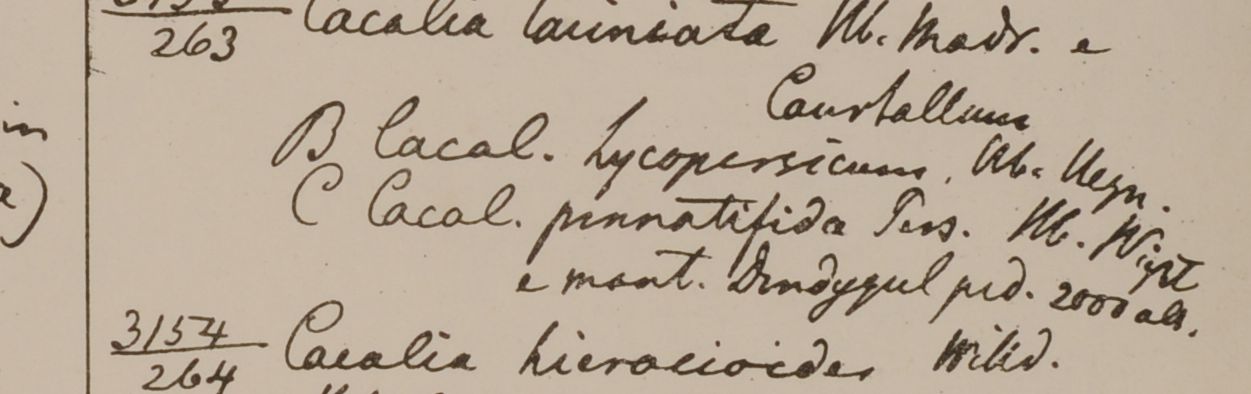 263 Cacalia laciniata Hb. Madr. e
Courtallum
in
B Cacal. Lycopersicum. Hb. Heyn.
C Cacal. pinnatifida Pers. Hb. Wight
e mont. Dindygul ped. 2000 alt.
3154
264 Cacalia hieracioides Willd.